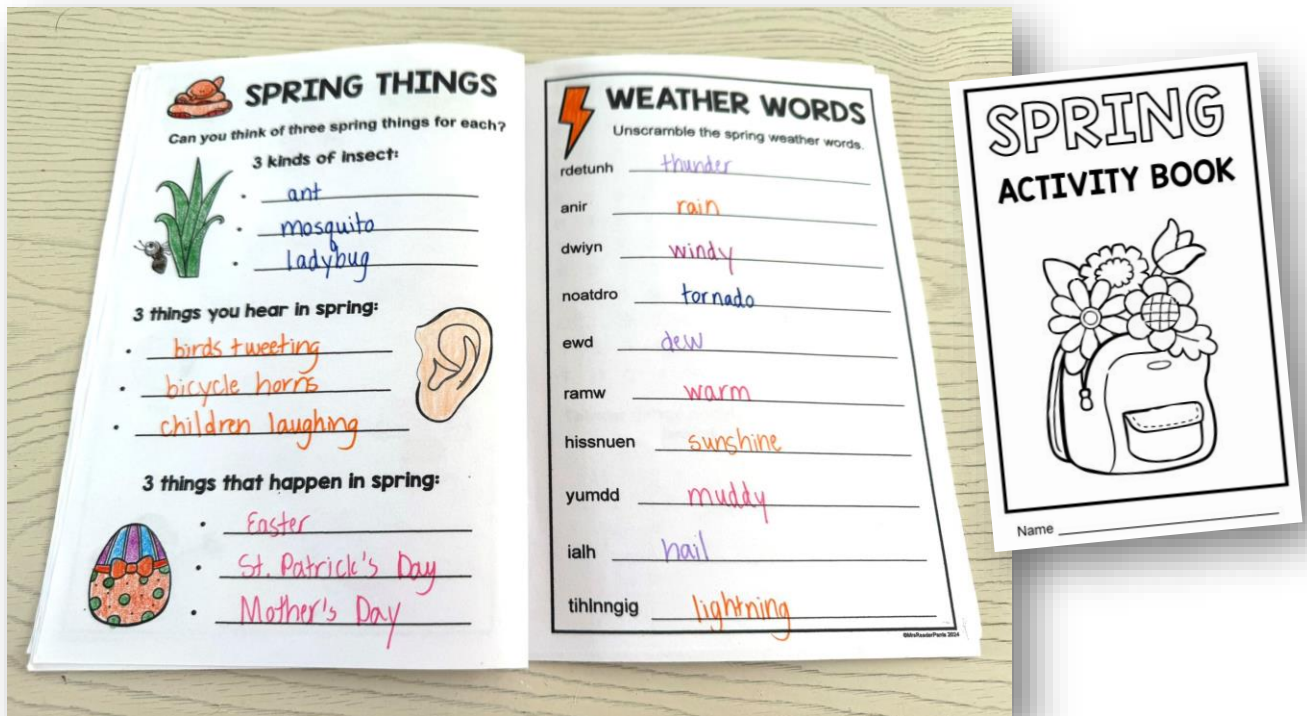 SPRING THINGS
Can you think of three spring things for each?
3 kinds of insect:
• ant
• mosquito
• ladybug
3 things you hear in spring:
• birds tweeting
• bicycle horns
• children laughing
3 things that happen in spring:
• Easter
• St. Patrick's Day
• Mother's Day
WEATHER WORDS
Unscramble the spring weather words.
rdetunh thunder
anir rain
dwiyn windy
noatdro tornado
ewd dew
ramw warm
hissnuen sunshine
yumdd muddy
ialh hail
tihlnngig lightning
©MrsReaderPants 2024
SPRING
ACTIVITY BOOK
Name